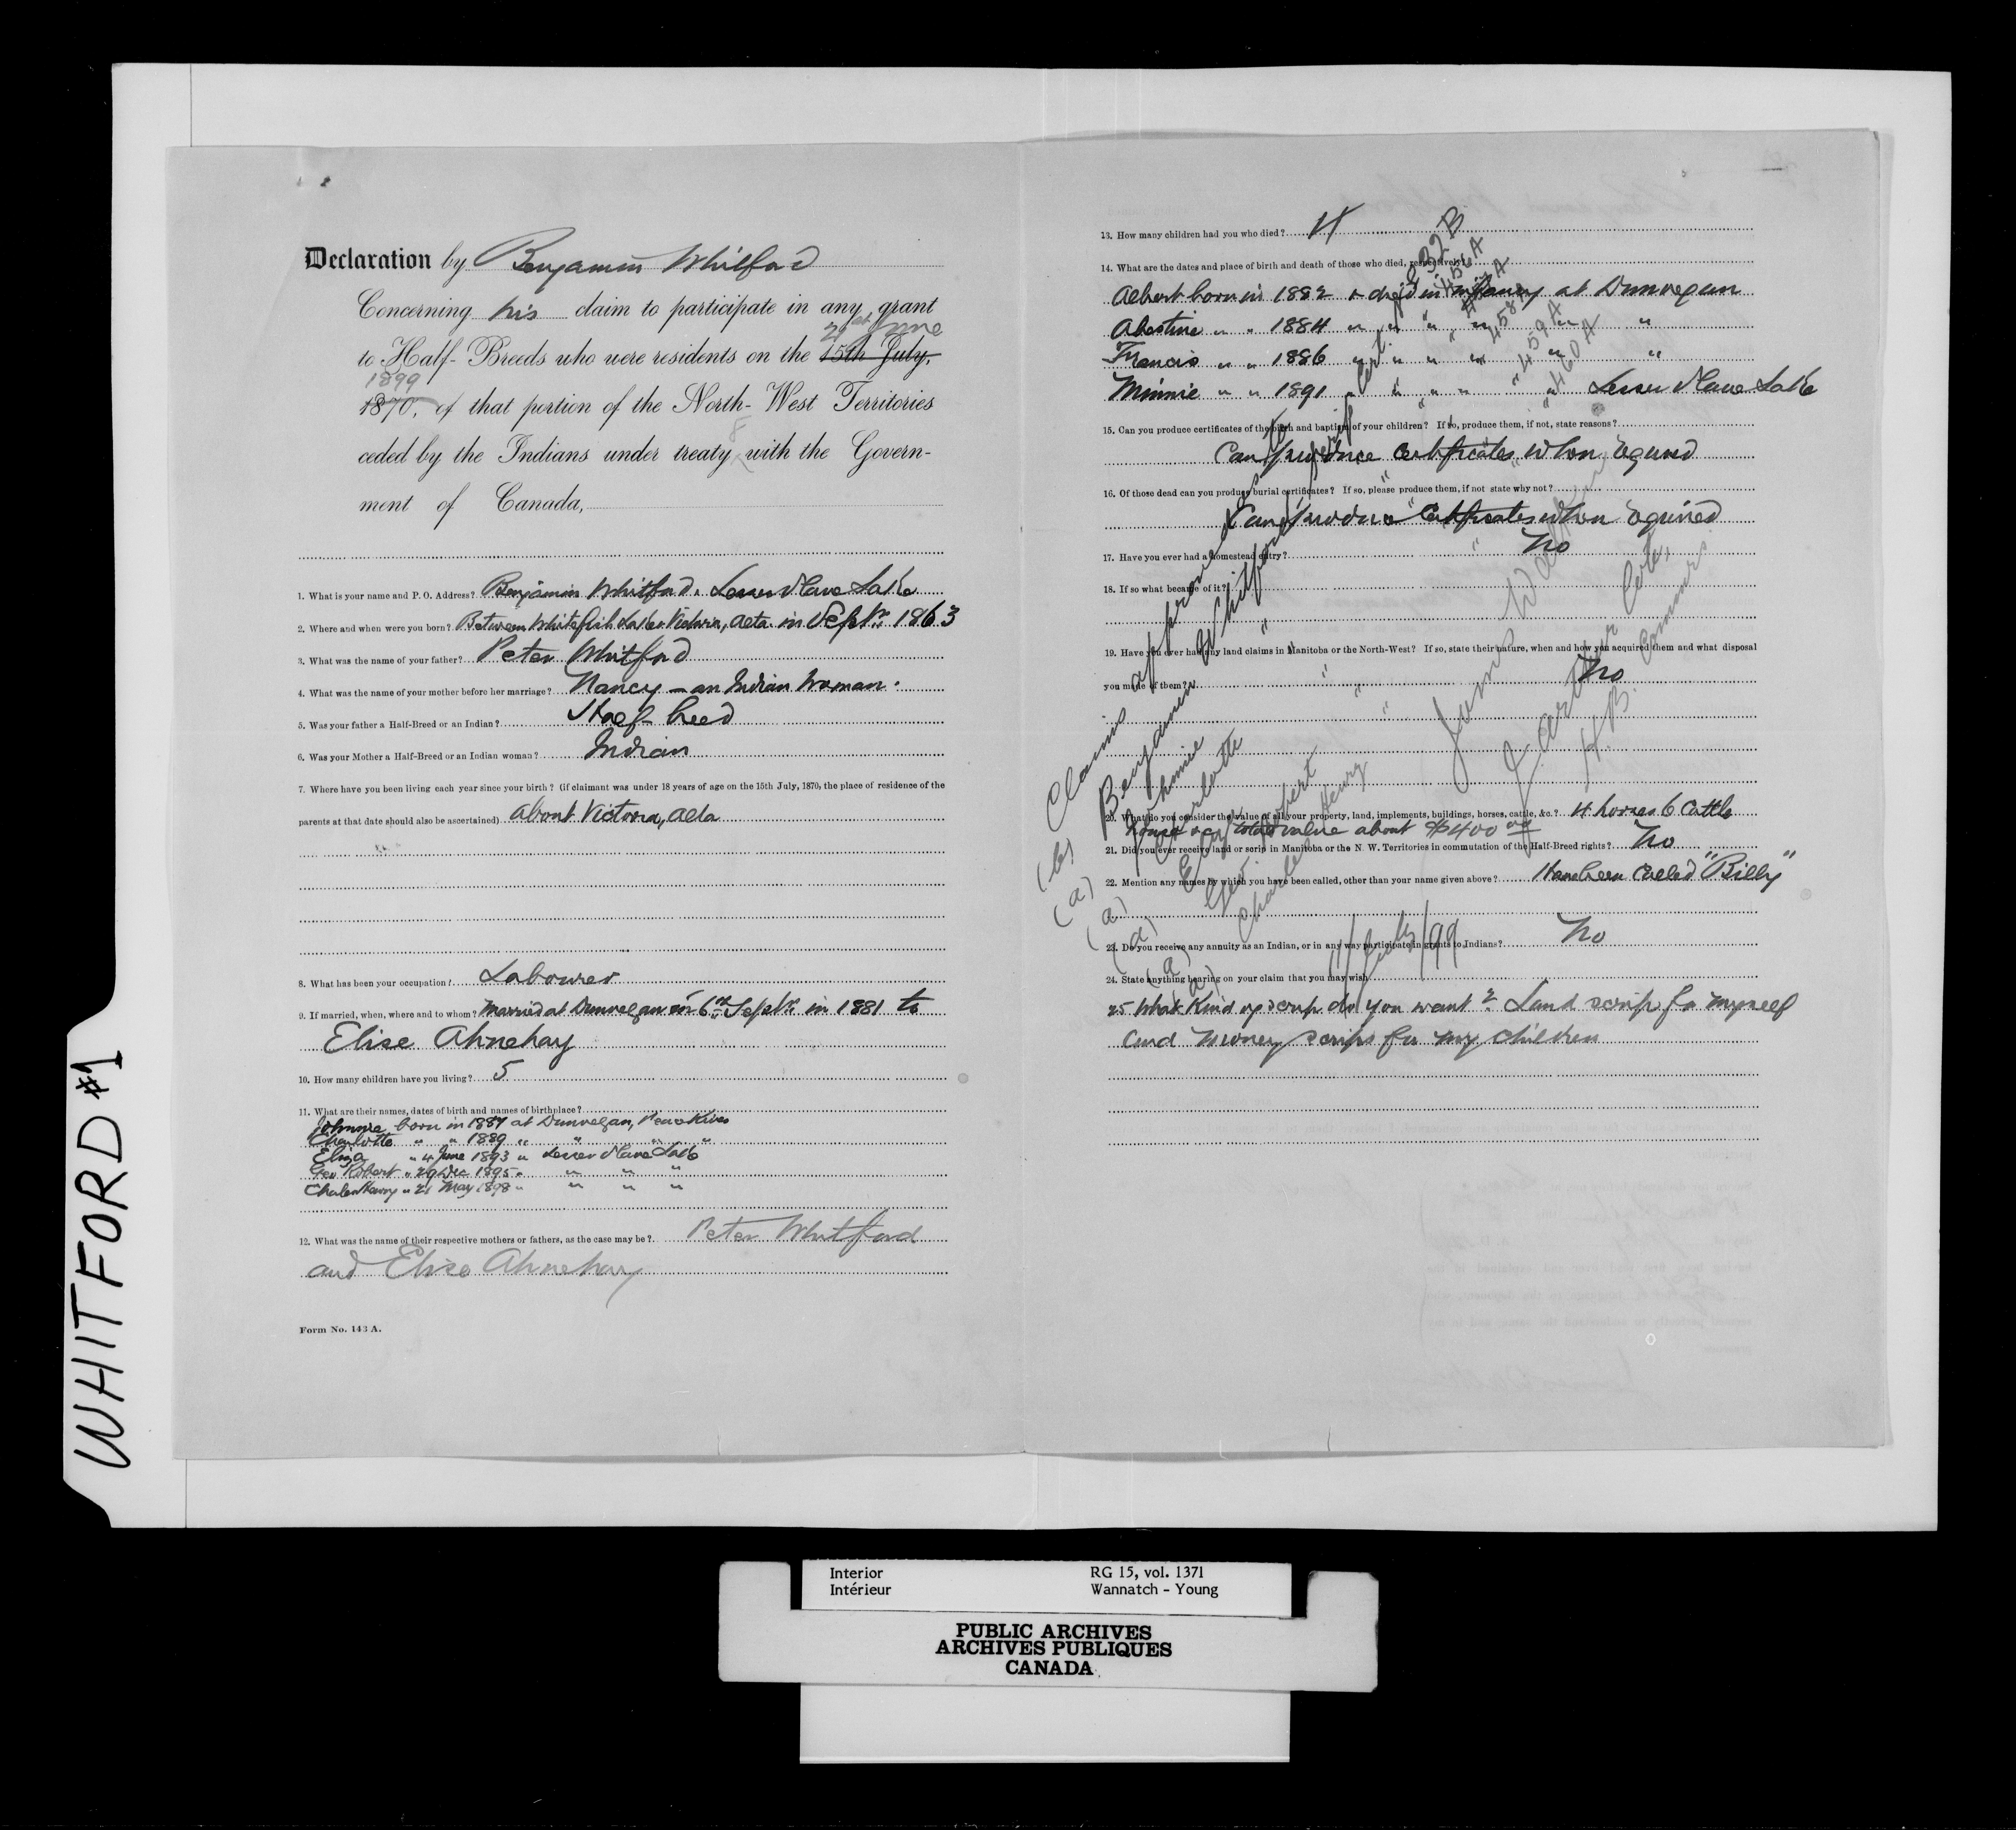 WHITFORD #1
Declaration by Benjamin Whitford
Concerning his claim to participate in any grant
21st June
to Half-Breeds who were residents on the 15th July,
1899
1870, of that portion of the North-West Territories
8
ceded by the Indians under treaty with the Govern-
ment of Canada,
1. What is your name and P. O. Address? Benjamin Whitford. Lesser Slave Lake
2. Where and when were you born? Between Whitefish Lake & Victoria, Alta. in Septr. 1863
3. What was the name of your father? Peter Whitford
4. What was the name of your mother before her marriage? Nancy - an Indian Woman.
5. Was your father a Half-Breed or an Indian? Half-breed
6. Was your Mother a Half-Breed or an Indian woman? Indian
7. Where have you been living each year since your birth? (if claimant was under 18 years of age on the 15th July, 1870, the place of residence of the
parents at that date should also be ascertained) About Victoria, Alta
8. What has been your occupation? Labourer
9. If married, when, where and to whom? Married at Dunvegan on 6th Septr. in 1881 to
Elise Ahnehay
10. How many children have you living? 5
11. What are their names, dates of birth and names of birthplace?
Johnnie born in 1887 at Dunvegan, Peace River
Charlotte " " 1889 " " " "
Eliza " 4 June 1893 " Lesser Slave Lake
Geo Robert " 29 Dec 1895 " " " "
Charles Henry " 21 May 1898 " " " "
12. What was the name of their respective mothers or fathers, as the case may be? Peter Whitford
and Elise Ahnehay
Form No. 143 A.
13. How many children had you who died? 4
14. What are the dates and place of birth and death of those who died, respectively?
Albert born in 1882 & died in infancy at Dunvegan
Abestine " " 1884 " " " " " "
Francis " " 1886 " " " " " "
Minnie " " 1891 " " " " " " Lesser Slave Lake
15. Can you produce certificates of the birth and baptism of your children? If so, produce them, if not, state reasons?
Can produce Certificates when required
16. Of those dead can you produce burial certificates? If so, please produce them, if not state why not?
Can produce Certificates when required
17. Have you ever had a homestead entry? No
18. If so what became of it?
19. Have you ever had any land claims in Manitoba or the North-West? If so, state their nature, when and how you acquired them and what disposal
you made of them? No
20. What do you consider the value of all your property, land, implements, buildings, horses, cattle, &c.? 4 horses 6 Cattle
house &c, total value about $400 00
21. Did you ever receive land or scrip in Manitoba or the N. W. Territories in commutation of the Half-Breed rights? No
22. Mention any names by which you have been called, other than your name given above? Have been called "Billy"
23. Do you receive any annuity as an Indian, or in any way participate in grants to Indians? No
24. State anything bearing on your claim that you may wish
25 What Kind of scrip do you want? Land scrip for myself
and money scrips for my children
Claims approved as
(b) Benjamin Whitford scrip cert. 832 B
(a) Johnnie " " 456 A
(a) Charlotte " " 457 A
(a) Eliza " " 458 A
(a) Geo. Robert " " 459 A
(a) Charles Henry " " 460 A
James Walker
J. Arthur Coté,
H.B. Commrs
11/July/99
Interior
Intérieur
RG 15, vol. 1371
Wannatch - Young
PUBLIC ARCHIVES
ARCHIVES PUBLIQUES
CANADA